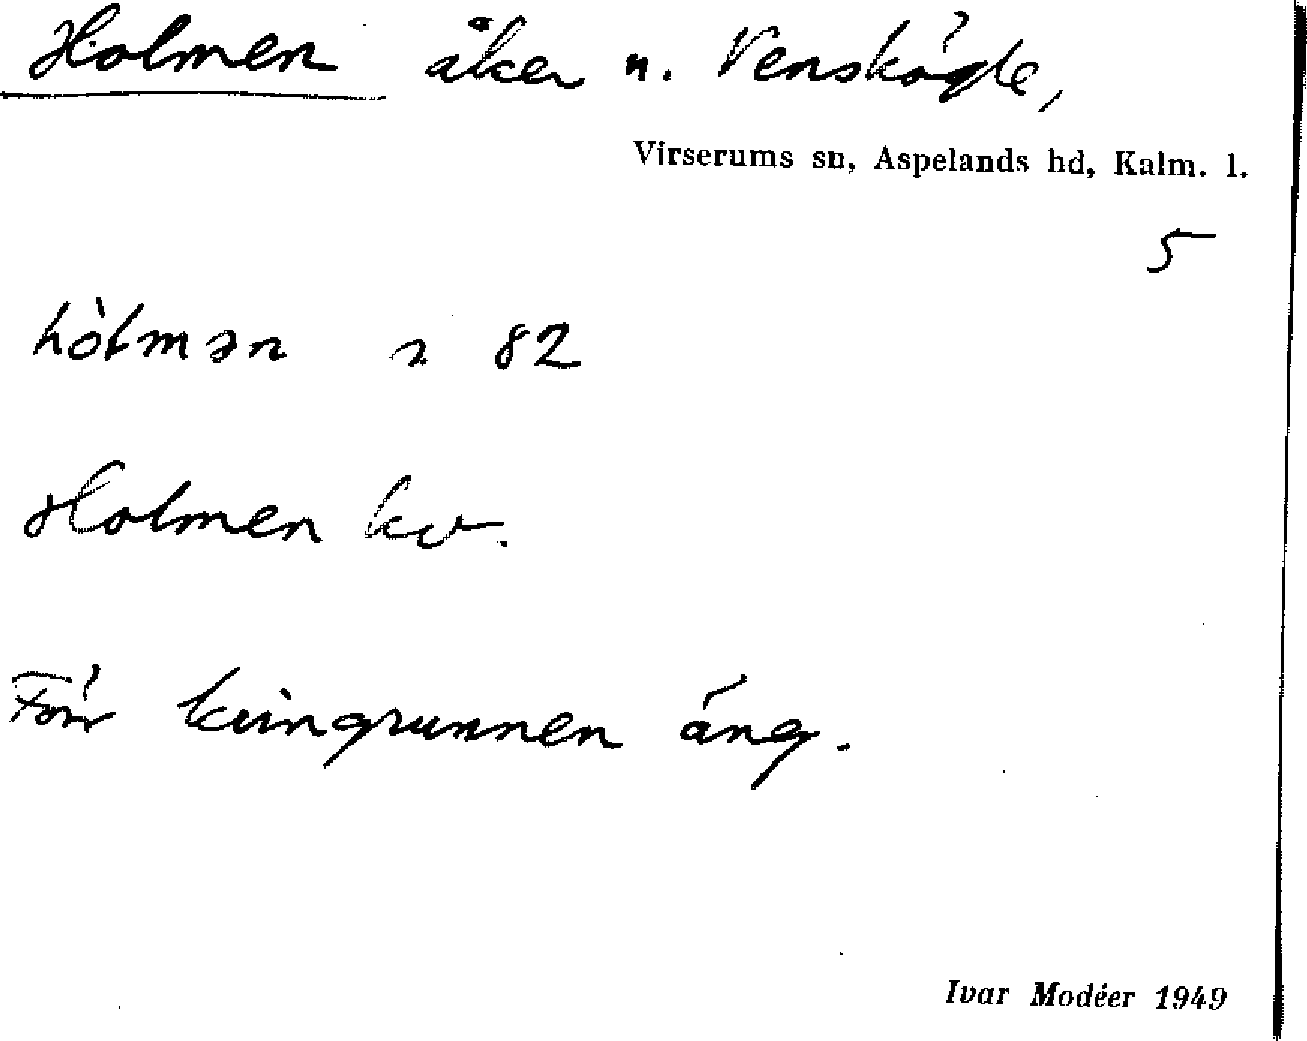 Holmen åker n. Venskögle,
Virserums sn, Aspelands hd, Kalm. l.
5
hòlmən 82
Holmen kv.
Förr kvingrunnen äng.
Ivar Modéer 1949